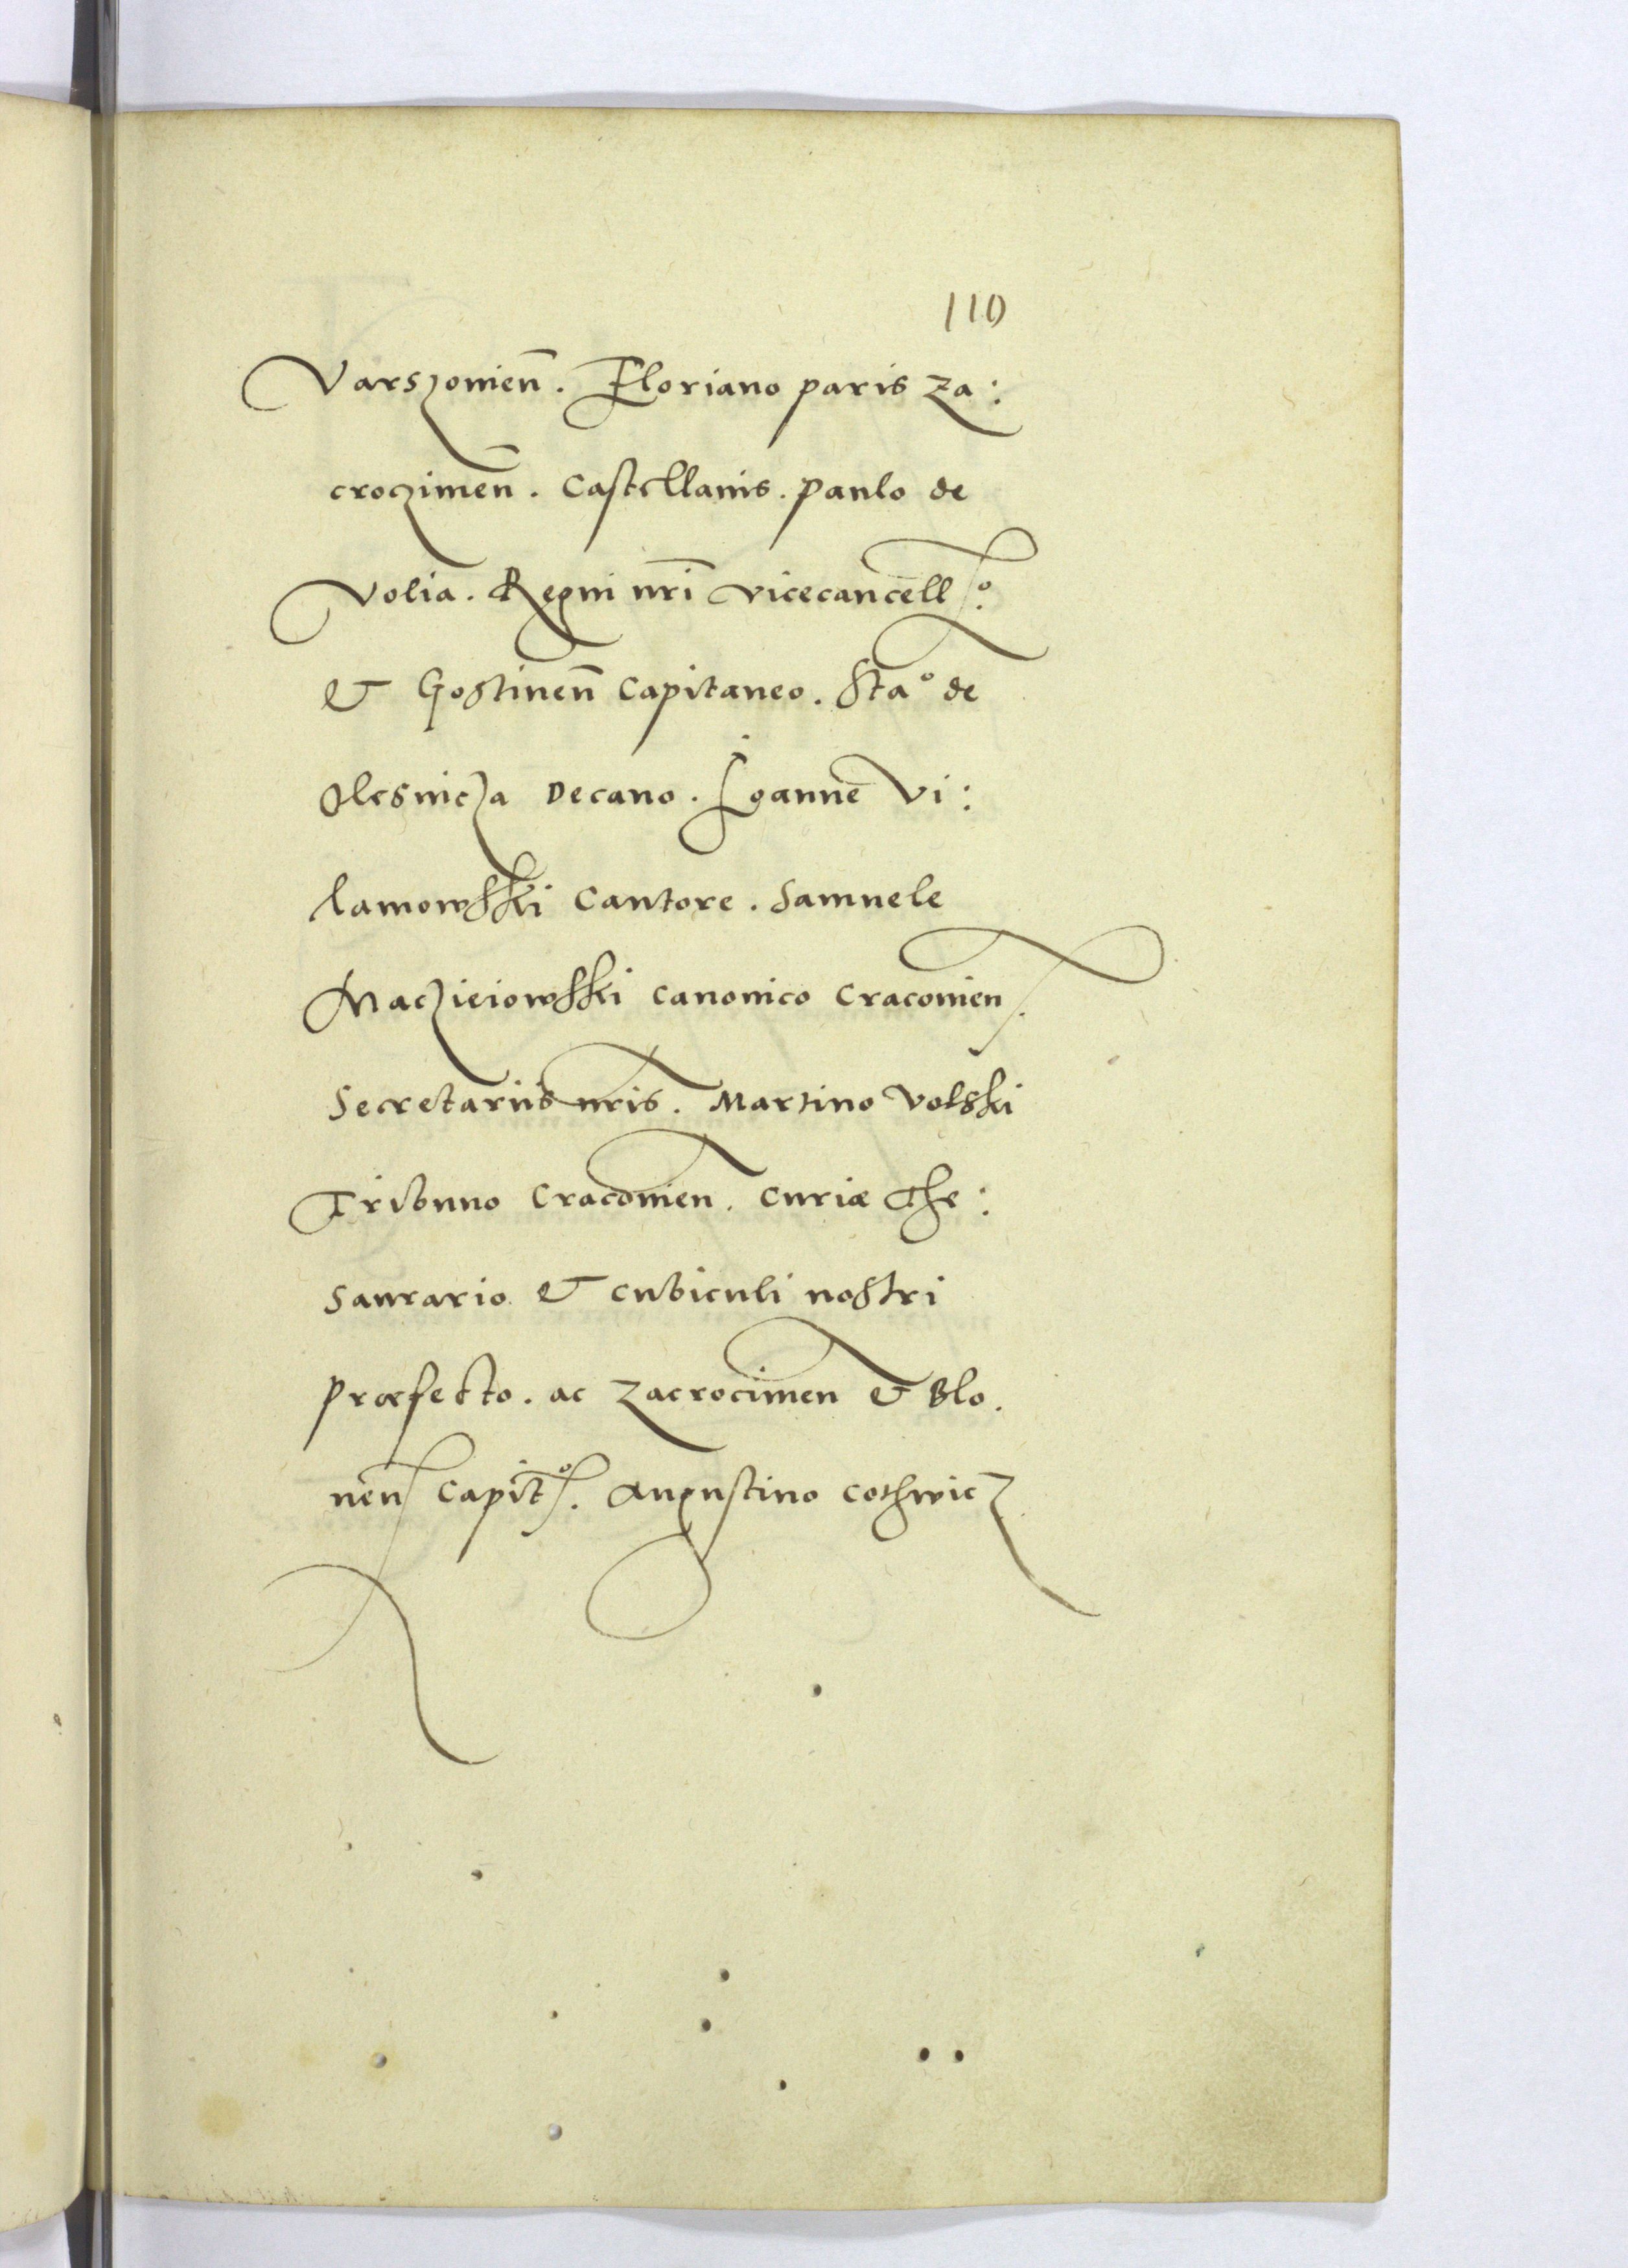 110
Varszouien̄. Floriano paris Za:
croczimen̄. Castellanis. Paulo de
Volia. Regni nr̄i vicecancell°.
& Gostinen̄ Capitaneo. Sta° de
Olesnicza Decano. Ioanne Vi:
lamowski Cantore. Samuele
Maczieiowski canonico Cracouien̄.
Secretariis nr̄is. Martino Volski
Tribuno Cracouien̄. curiæ The:
saurario & cubiculi nostri
præfecto. ac Zacrocimen̄ & Blo.
nen̄ Capit°. Augustino Cothwicz